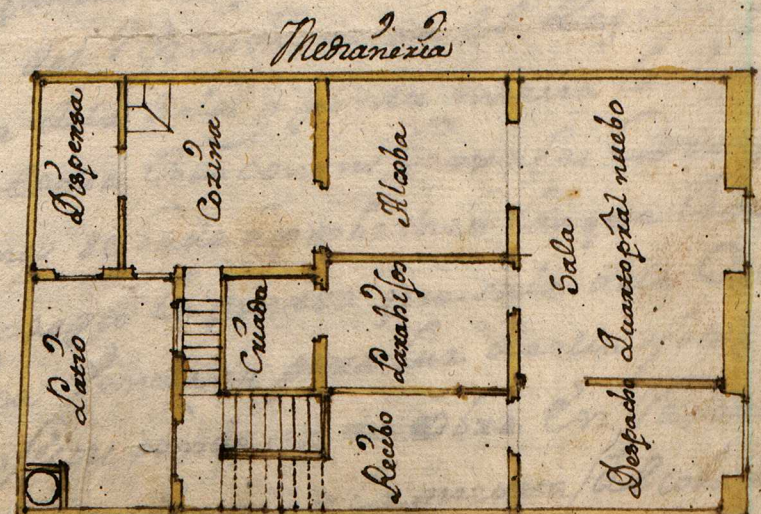 Medianeria
Dispensa
Cozina
Alcoba
Sala
Quarto pral nuebo
Patio
Criada
Para hijos
Recibo
Despacho